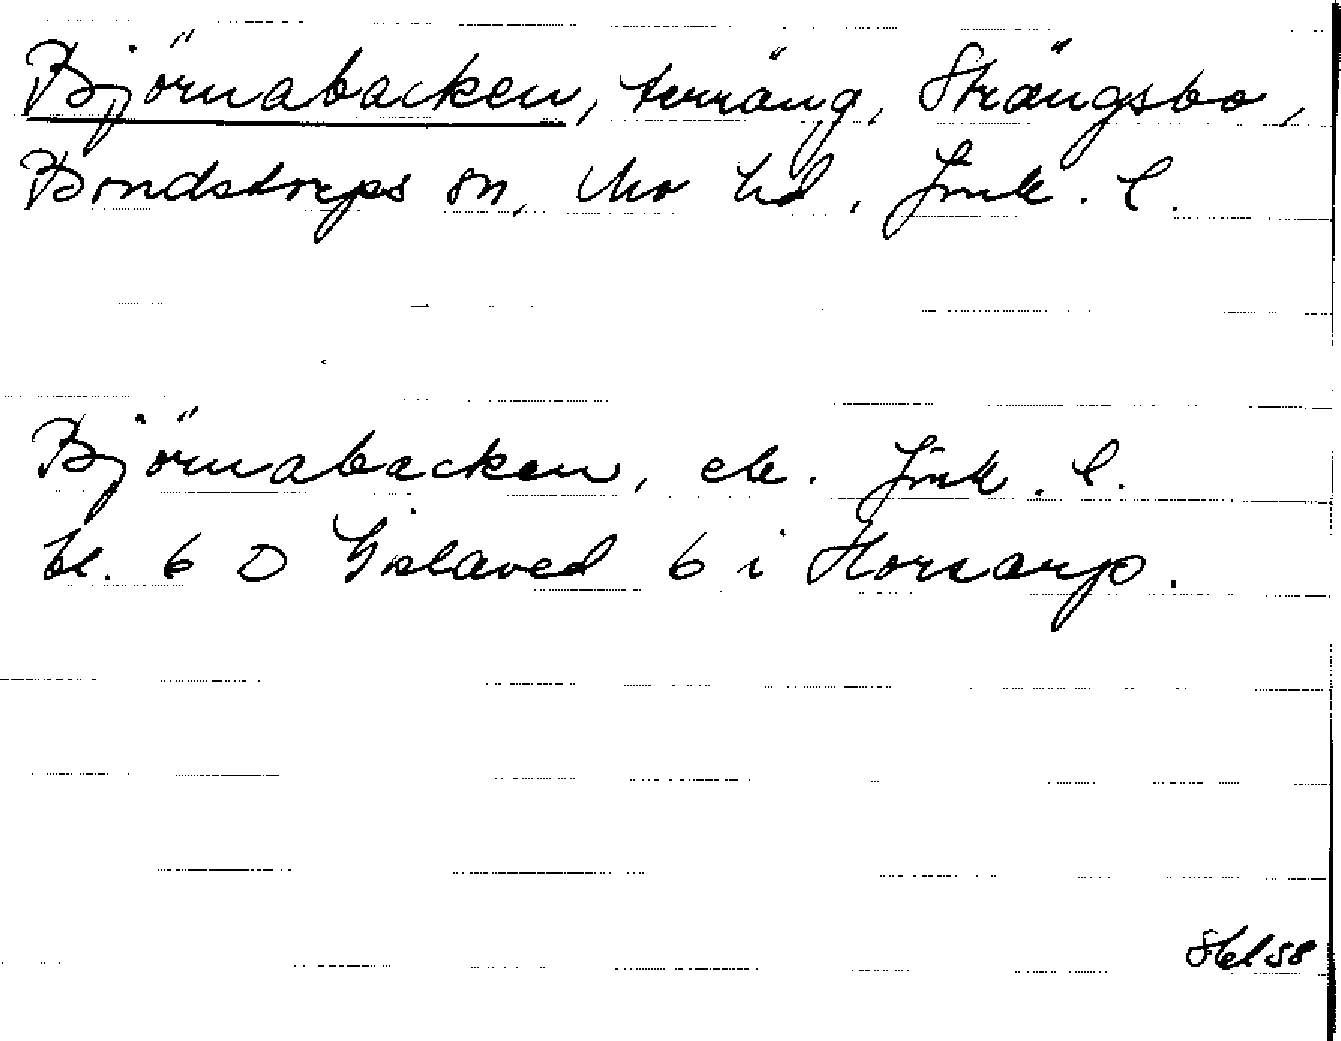 Björnabacken, terräng, Strängsbo,
Bondstorps sn, Mo hd, Jmk. l.
Björnabacken, ek. Jmk. l.
bl. 6 D Gislaved 6 i Horsarp.